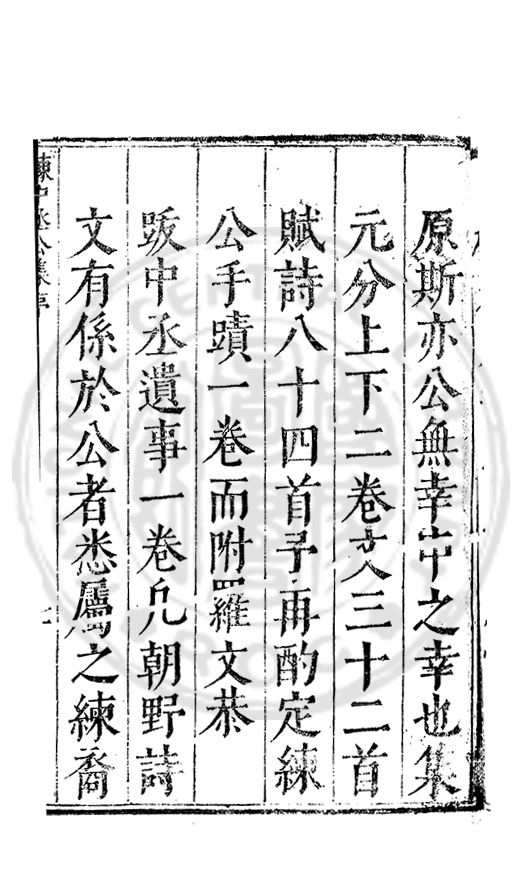 原斯亦公無幸中之幸也集
元分上下二卷文三十二首
賦詩八十四首予再酌定練
公手蹟一卷而附羅文恭
跋中丞遺事一卷凢朝野詩
文有係於公者悉屬之練裔
練中丞公集序